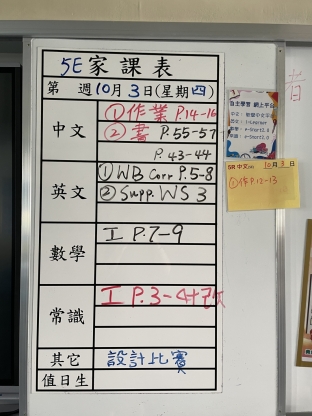 5E家課表
第 週10月3日(星期四)
中文 ①作業 P.14-16
②書 P.55-57
P.43-44
英文 ①WB Corr P.5-8
②Supp. WS 3
數學 工 P.7-9
常識 工 P.3-4+改
其它 設計比賽
值日生
自主學習 網上平台
5R 中文(M) 10月3日
①作P.12-13
者